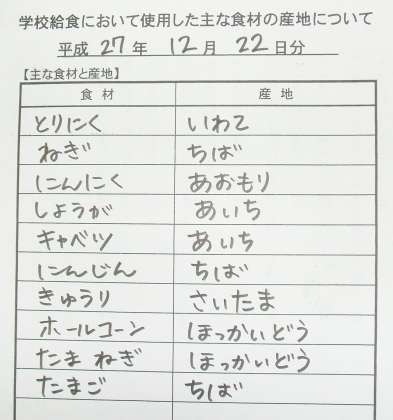 学校給食において使用した主な食材の産地について
平成 27 年 12 月 22 日分
【主な食材と産地】
食材 産地
とりにく いわて
ねぎ ちば
にんにく あおもり
しょうが あいち
キャベツ あいち
にんじん ちば
きゅうり さいたま
ホールコーン ほっかいどう
たまねぎ ほっかいどう
たまご ちば